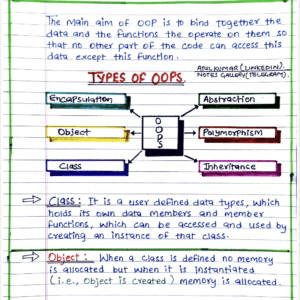 The main aim of OOP is to bind together the
data and the functions the operate on them so
that no other part of the code can access this
data except this function.
ANIL KUMAR (LINKEDIN).
NOTES GALLERY (TELEGRAM).
TYPES OF OOPS.
Encapsulation
Abstraction
OOPS
Object
Polymorphism
Class
Inheritance
Class: It is a user defined data types, which
holds its own data members and member
functions, which can be accessed and used by
creating an instance of that class.
Object: When a class is defined no memory
is allocated but when it is instantiated
(i.e., Object is created) memory is allocated.